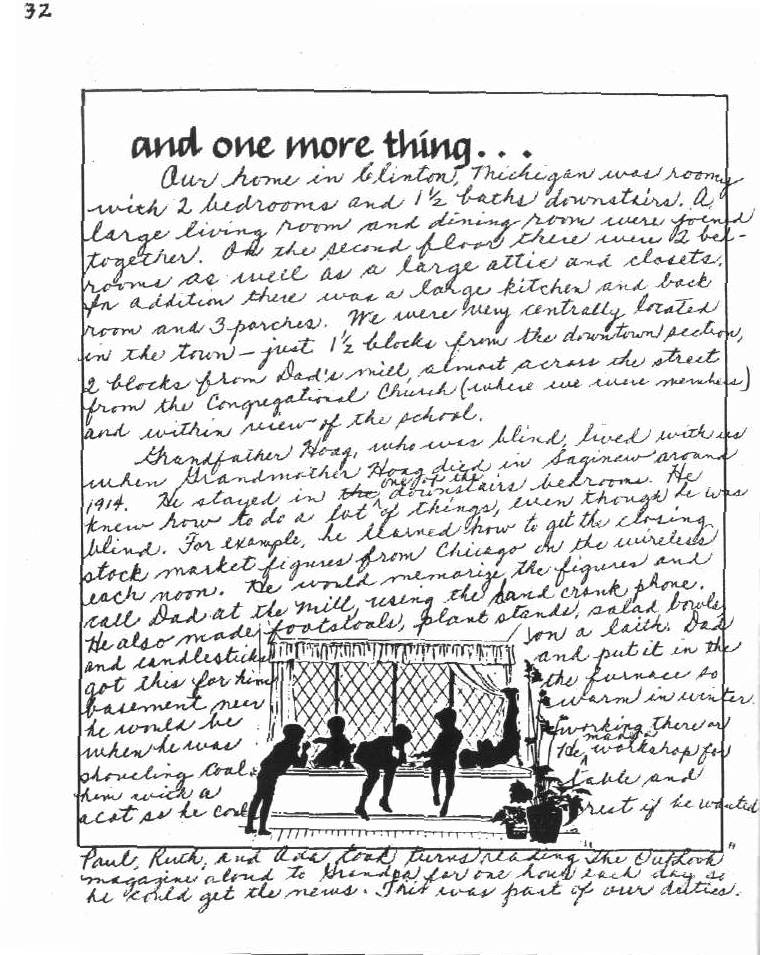 32
and one more thing...
Our home in Clinton, Michigan was roomy
with 2 bedrooms and 1½ baths downstairs. A
large living room and dining-room were joined
together. On the second floor there were 2 bed-
rooms as well as a large attic and closets.
In addition there was a large kitchen and back
room and 3 porches. We were very centrally located
in the town - just 1½ blocks from the downtown section,
2 blocks from Dad's mill, almost across the street
from the Congregational Church (where we were members)
and within view of the school.
Grandfather Hoag, who was blind, lived with us
when Grandmother Hoag died in Saginaw around
1914. He stayed in the one of the downstairs bedrooms. He
knew how to do a lot of things, even though he was
blind. For example, he learned how to get the closing
stock market figures from Chicago on the wireless
each noon. He would memorize the figures and
call Dad at the mill, using the hand crank phone.
He also made footstools, plant stands, salad bowls,
and candlesticks on a laith. Dad
got this for him and put it in the
basement near the furnace so
he would be warm in winter
when he was working there or
shoveling coal. He made a workshop for
him with a table and
a cot so he could rest if he wanted
Paul, Ruth, and Ada took turns reading "The Outlook"
magazine aloud to Grandpa for one hour each day so
he could get the news. This was part of our duties.